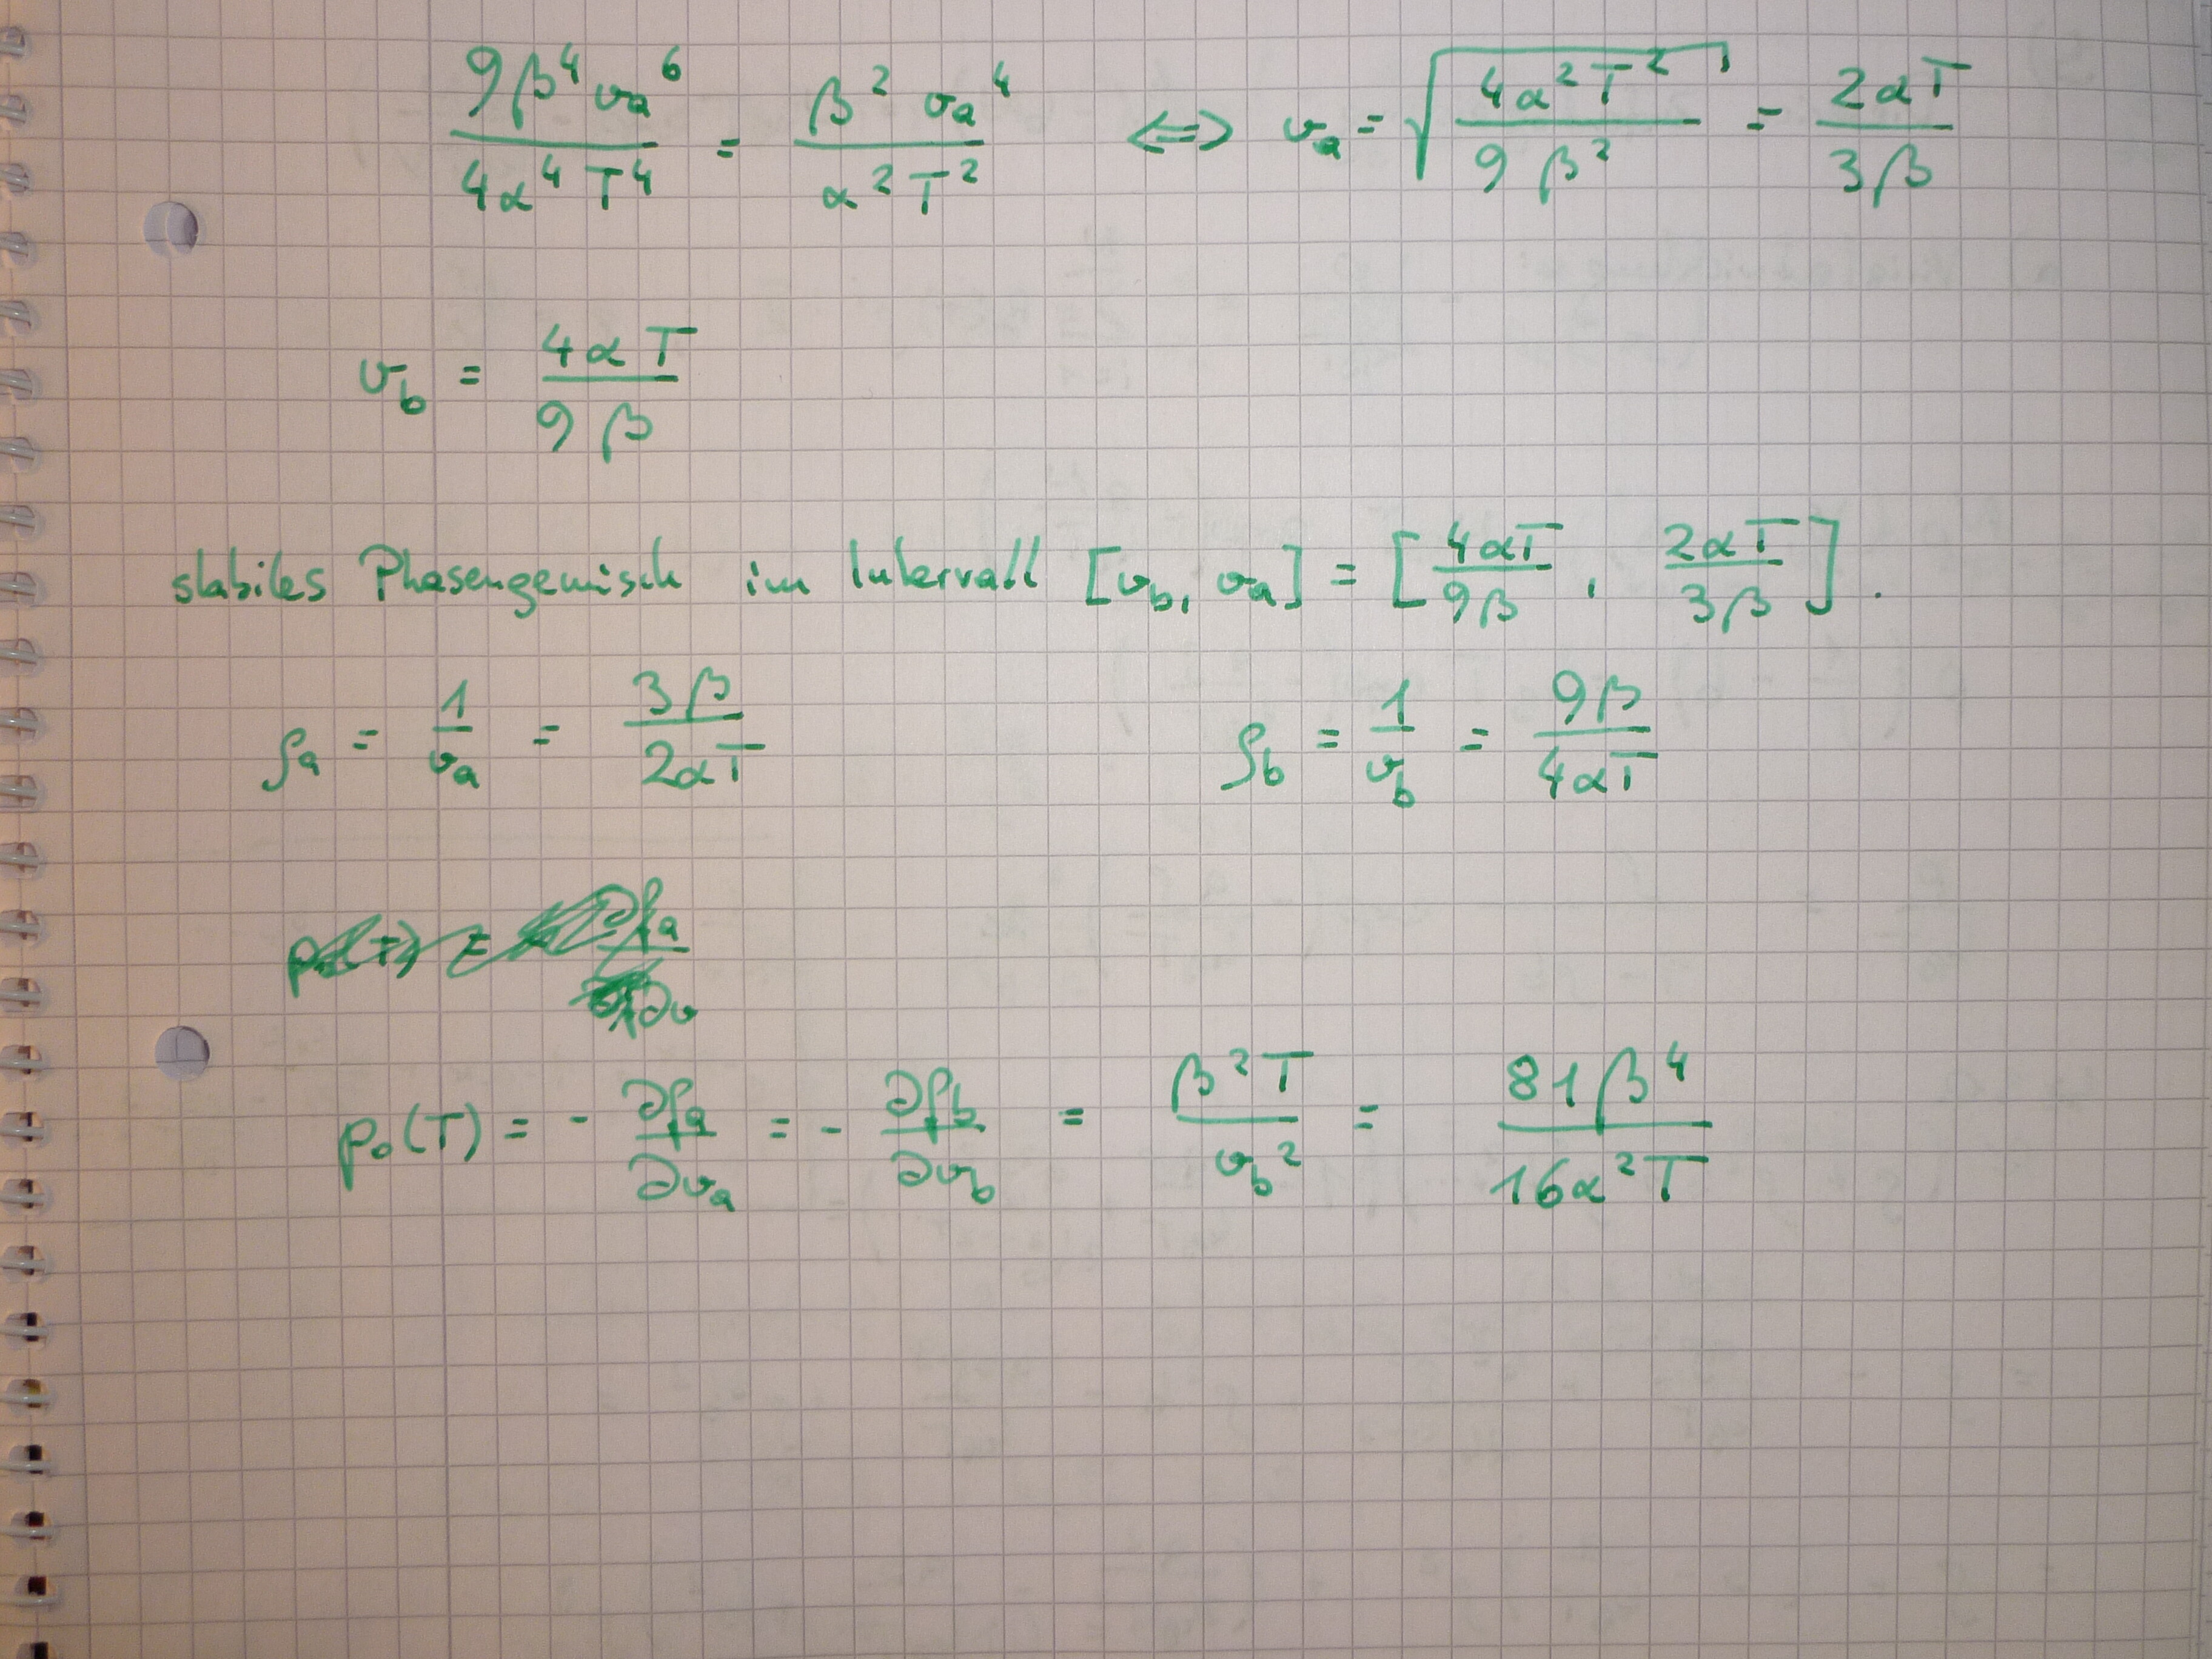 9β⁴ v_a⁶ / 4α⁴ T⁴ = β² v_a⁴ / α² T² ⟺ v_a = √(4α² T² / 9 β²) = 2αT / 3β
v_b = 4αT / 9β
stabiles Phasengemisch im Intervall [v_b, v_a] = [4αT / 9β , 2αT / 3β].
ρ_a = 1 / v_a = 3β / 2αT ρ_b = 1 / v_b = 9β / 4αT
p₀(T) = - ∂f_a / ∂v_a = - ∂f_b / ∂v_b = β² T / v_b² = 81 β⁴ / 16α² T